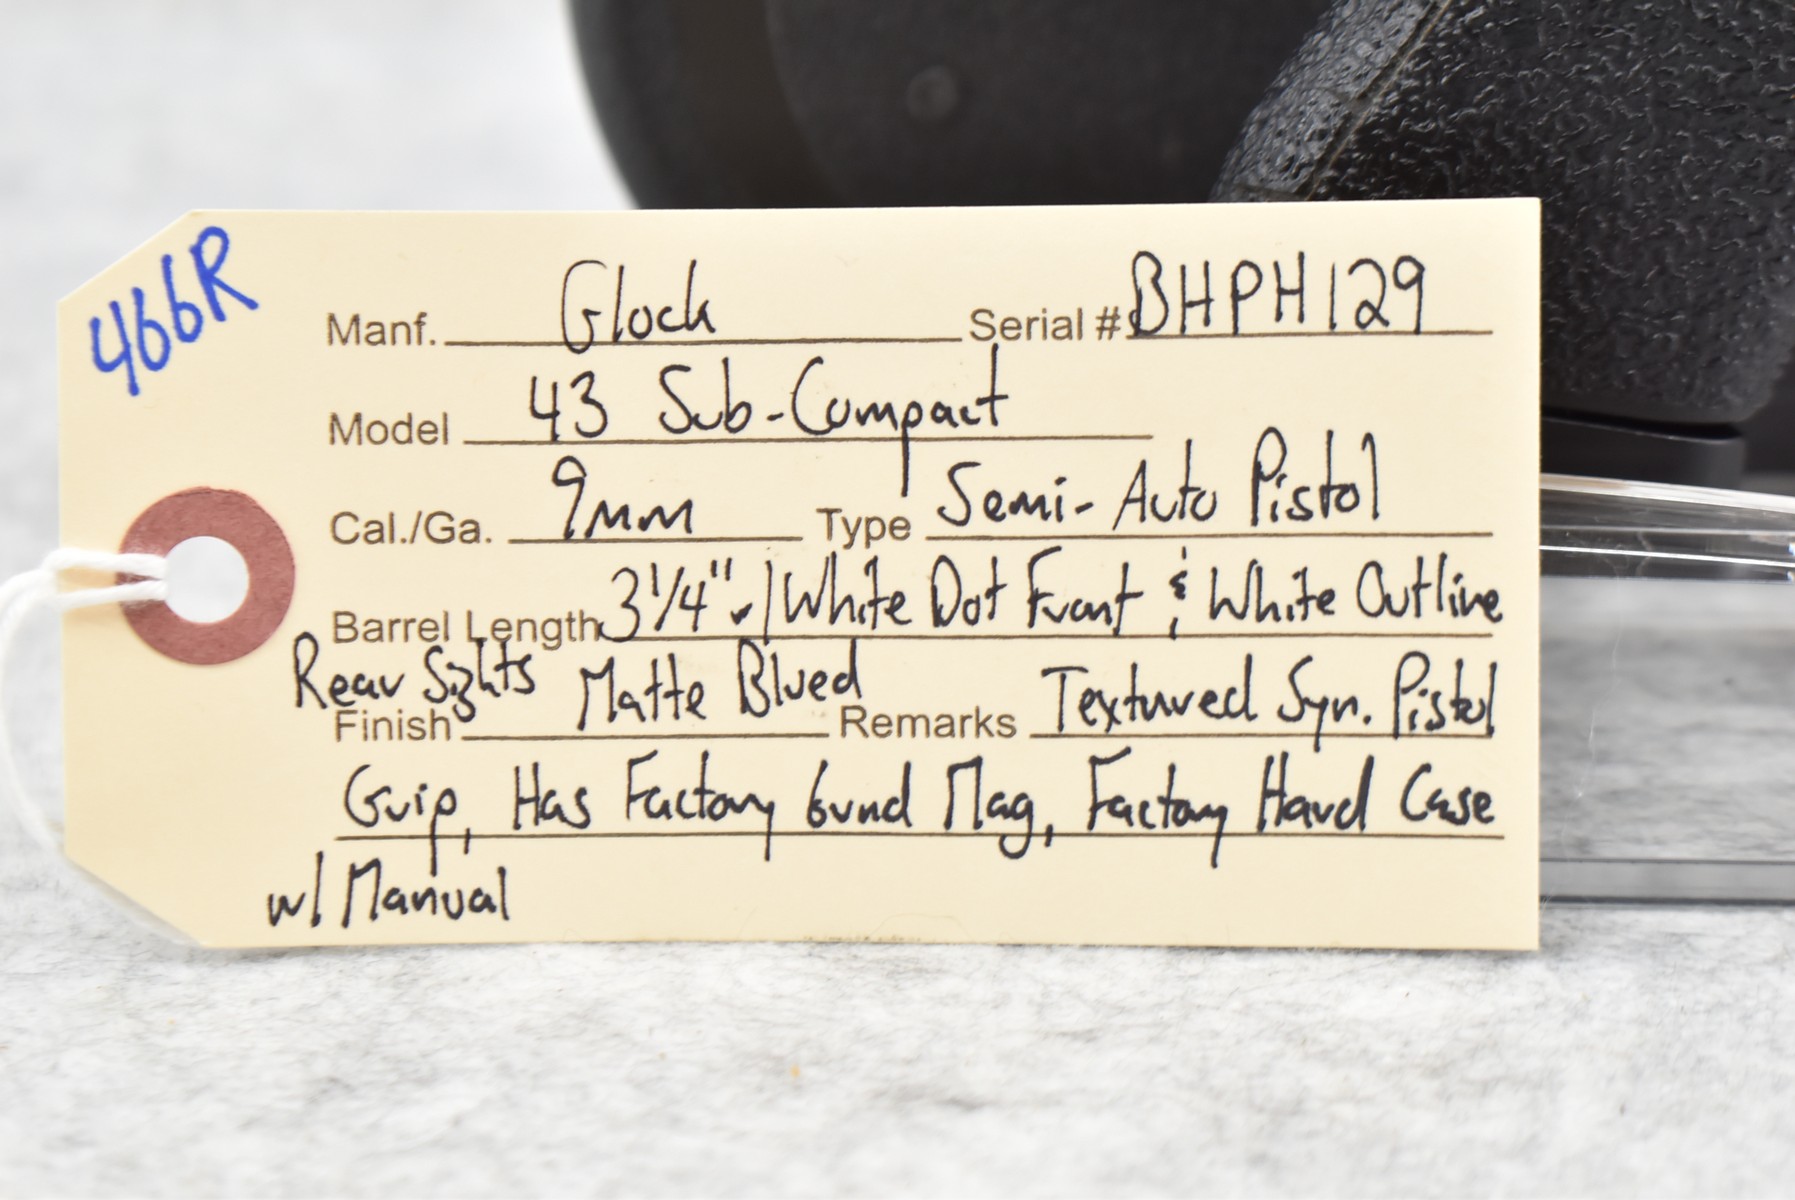 466R
Manf. Glock Serial # BHPH129
Model 43 Sub-Compact
Cal./Ga. 9mm Type Semi-Auto Pistol
Barrel Length 3 1/4" w/ White Dot Front & White Outline
Rear Sights
Finish Matte Blued Remarks Textured Syn. Pistol
Grip, Has Factory 6rnd Mag, Factory Hard Case
w/ Manual